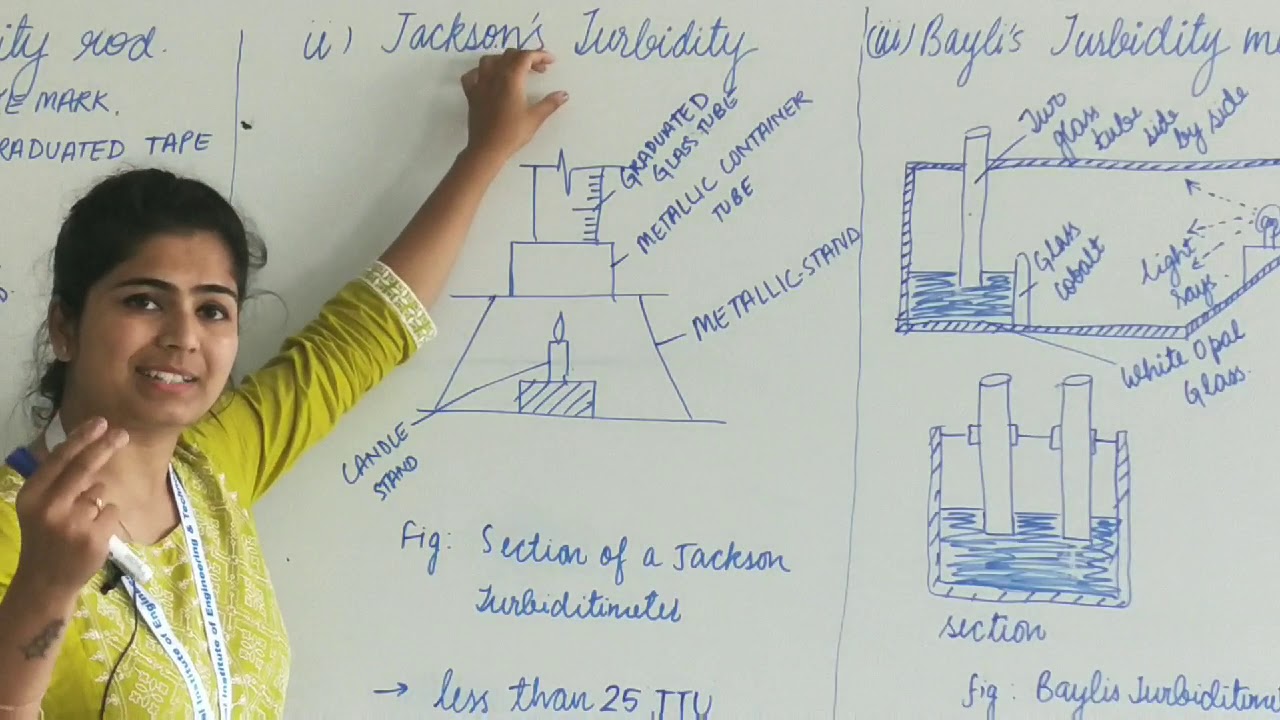 ity rod.
E MARK.
RADUATED TAPE
ii) Jackson's Turbidity
GRADUATED
GLASS TUBE
METALLIC CONTAINER
TUBE
METALLIC-STAND
CANDLE
STAND
Fig: Section of a Jackson
Turbiditimeter
→ less than 25 JTU
(iii) Bayli's Turbidity m
Two
glass
tube
side
by side
Glass
cobalt
light
rays.
White Opal
Glass.
section
fig: Baylis Turbiditime
Institute of Engineering & Techn
l Institute of Engineering